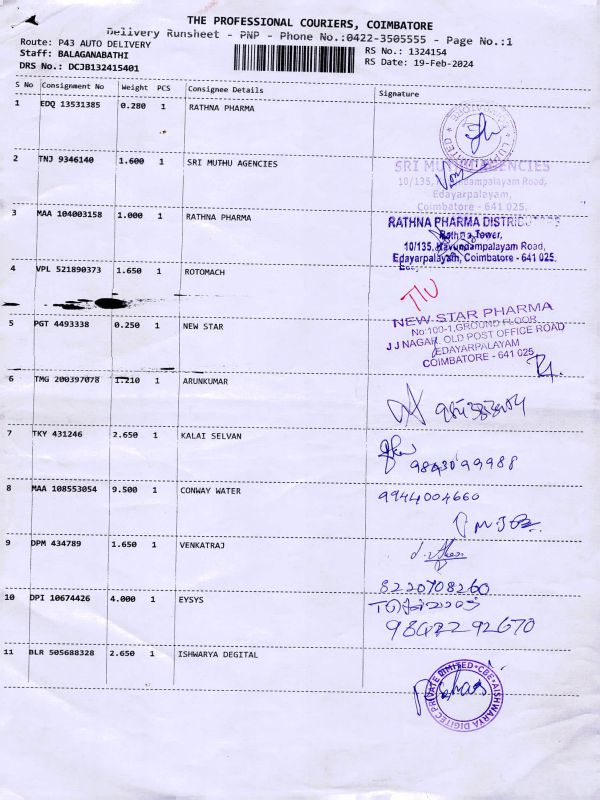 THE PROFESSIONAL COURIERS, COIMBATORE
Delivery Runsheet - PNP - Phone No.:0422-3505555 - Page No.:1
Route: P43 AUTO DELIVERY
RS No.: 1324154
Staff: BALAGANABATHI
RS Date: 19-Feb-2024
DRS No.: DCJB132415401
S No Consignment No Weight PCS Consignee Details Signature
1 EDQ 13531385 0.280 1 RATHNA PHARMA
2 TNJ 9346140 1.600 1 SRI MUTHU AGENCIES
SRI MUTHU AGENCIES
10/135, Edayarpalayam,
Coimbatore - 641 025.
3 MAA 104003158 1.000 1 RATHNA PHARMA
RATHNA PHARMA
Rathna Tower,
10/135, Kavundampalayam Road,
Edayarpalayam, Coimbatore - 641 025.
4 VPL 521890373 1.650 1 ROTOMACH
5 PGT 4493338 0.250 1 NEW STAR
NEW STAR PHARMA
No:100-1,GROUND FLOOR
J J NAGAR, OLD POST OFFICE ROAD
EDAYARPALAYAM
COIMBATORE - 641 025
6 TMG 200397078 1.210 1 ARUNKUMAR
7 TKY 431246 2.650 1 KALAI SELVAN
8 MAA 108553054 9.500 1 CONWAY WATER
9944004660
9 DPM 434789 1.650 1 VENKATRAJ
8220708260
10 DPI 10674426 4.000 1 EYSYS
11 BLR 505688328 2.650 1 ISHWARYA DEGITAL
AISHWARYA DIGITEC PRIVATE LIMITED CBE